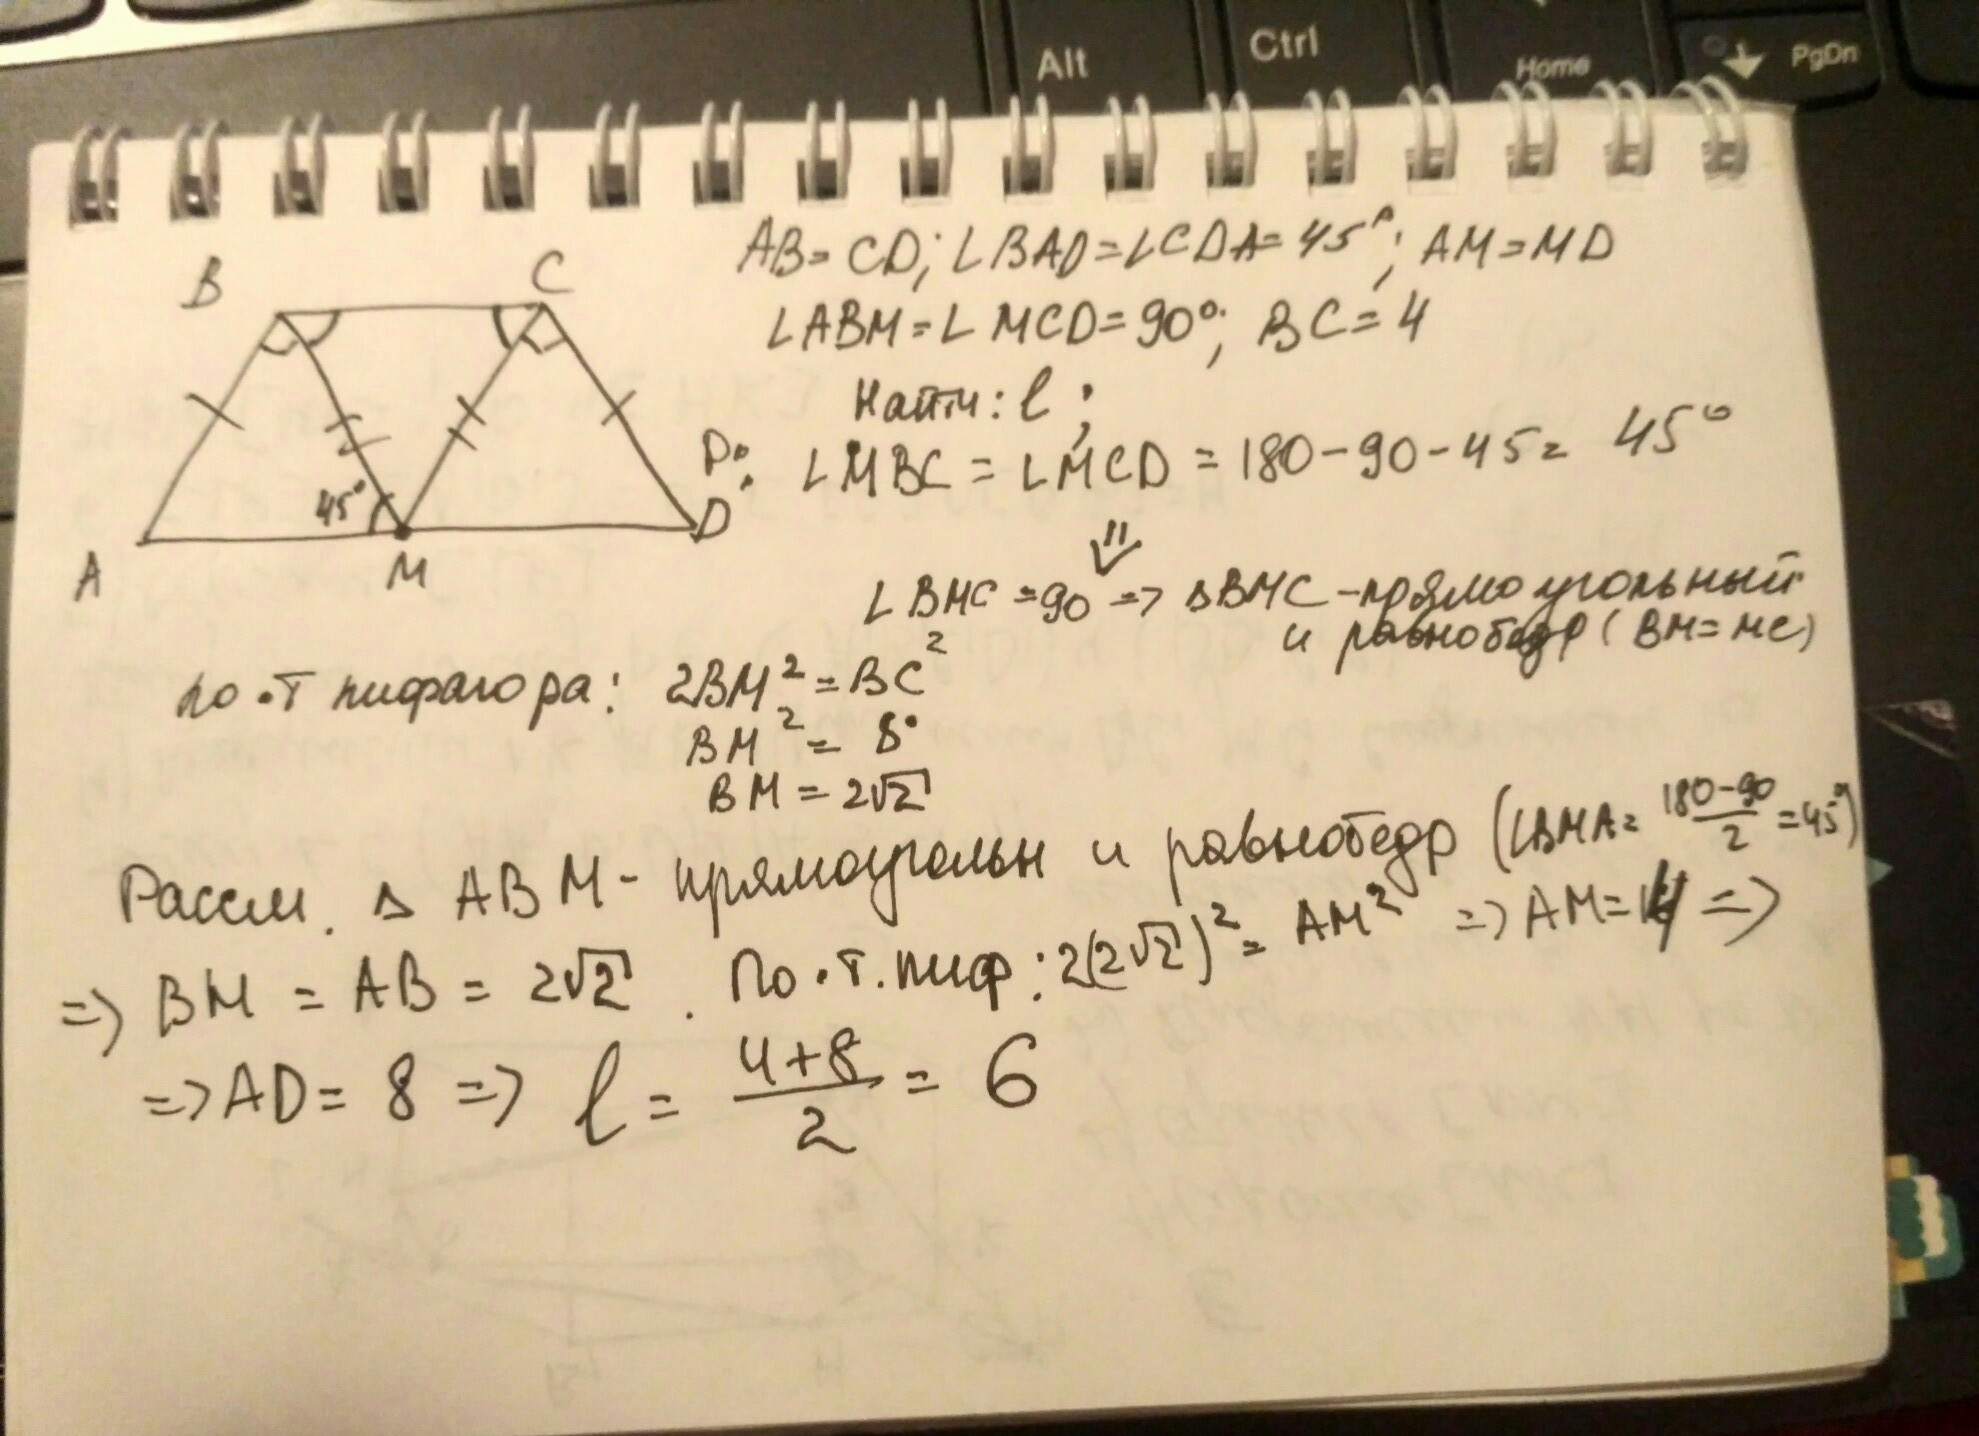 Alt
Ctrl
Home
PgDn
B
C
45°
A
M
D
AB = CD; ∠BAD = ∠CDA = 45°; AM = MD
∠ABM = ∠MCD = 90°; BC = 4
Найти: l;
Р: ∠MBC = ∠MCD = 180 - 90 - 45 = 45°
∠BMC = 90 => ΔBMC - прямоугольный
и равнобедр (BM = MC)
по.т пифагора: 2BM² = BC²
BM² = 8
BM = 2√2
Рассм. Δ ABM - прямоугольн и равнобедр (∠BMA = 180-90/2 = 45°)
=> BM = AB = 2√2. По.т.пиф: 2(2√2)² = AM² => AM = 4 =>
=> AD = 8 => l = 4+8/2 = 6